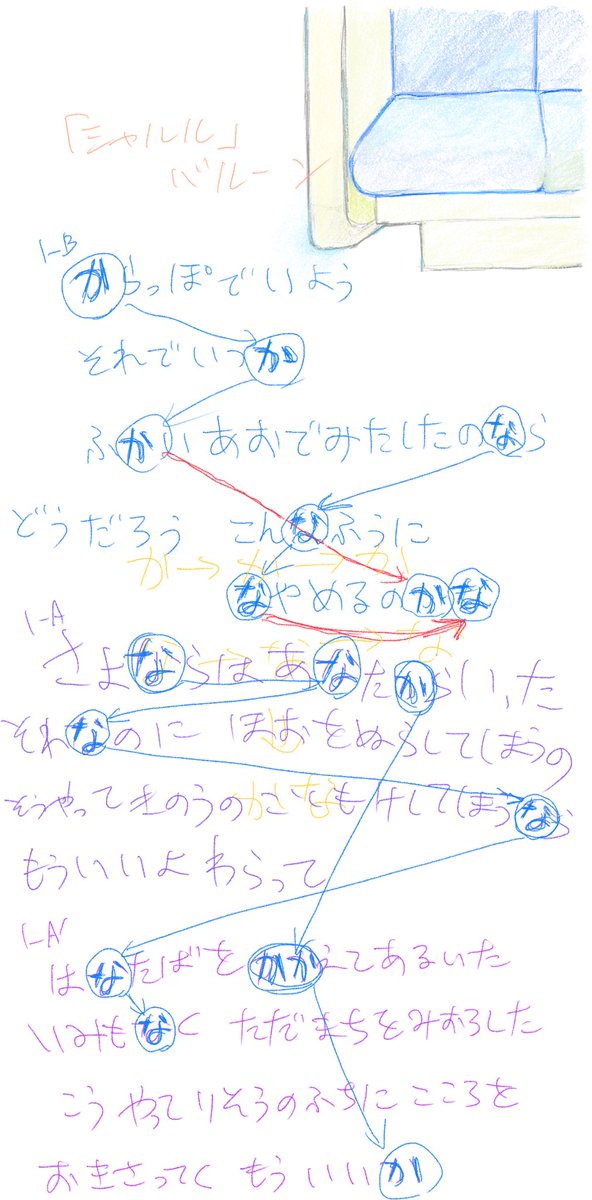 「シャルル」
バルーン
1-B
からっぽでいよう
それでいつか
ふかいあおでみたしたのなら
どうだろう こんなふうに
か→か→か
なやめるのかな
1-A
さよならはあなたからいった
それなのに ほおをぬらしてしまうの
そうやってきのうのことも けしてしまうなら
もういいよ わらって
1-A'
はなたばを かかえてあるいた
いみもなく ただまちをみおろした
こうやってりそうのふちに こころを
おきさってく もういいか